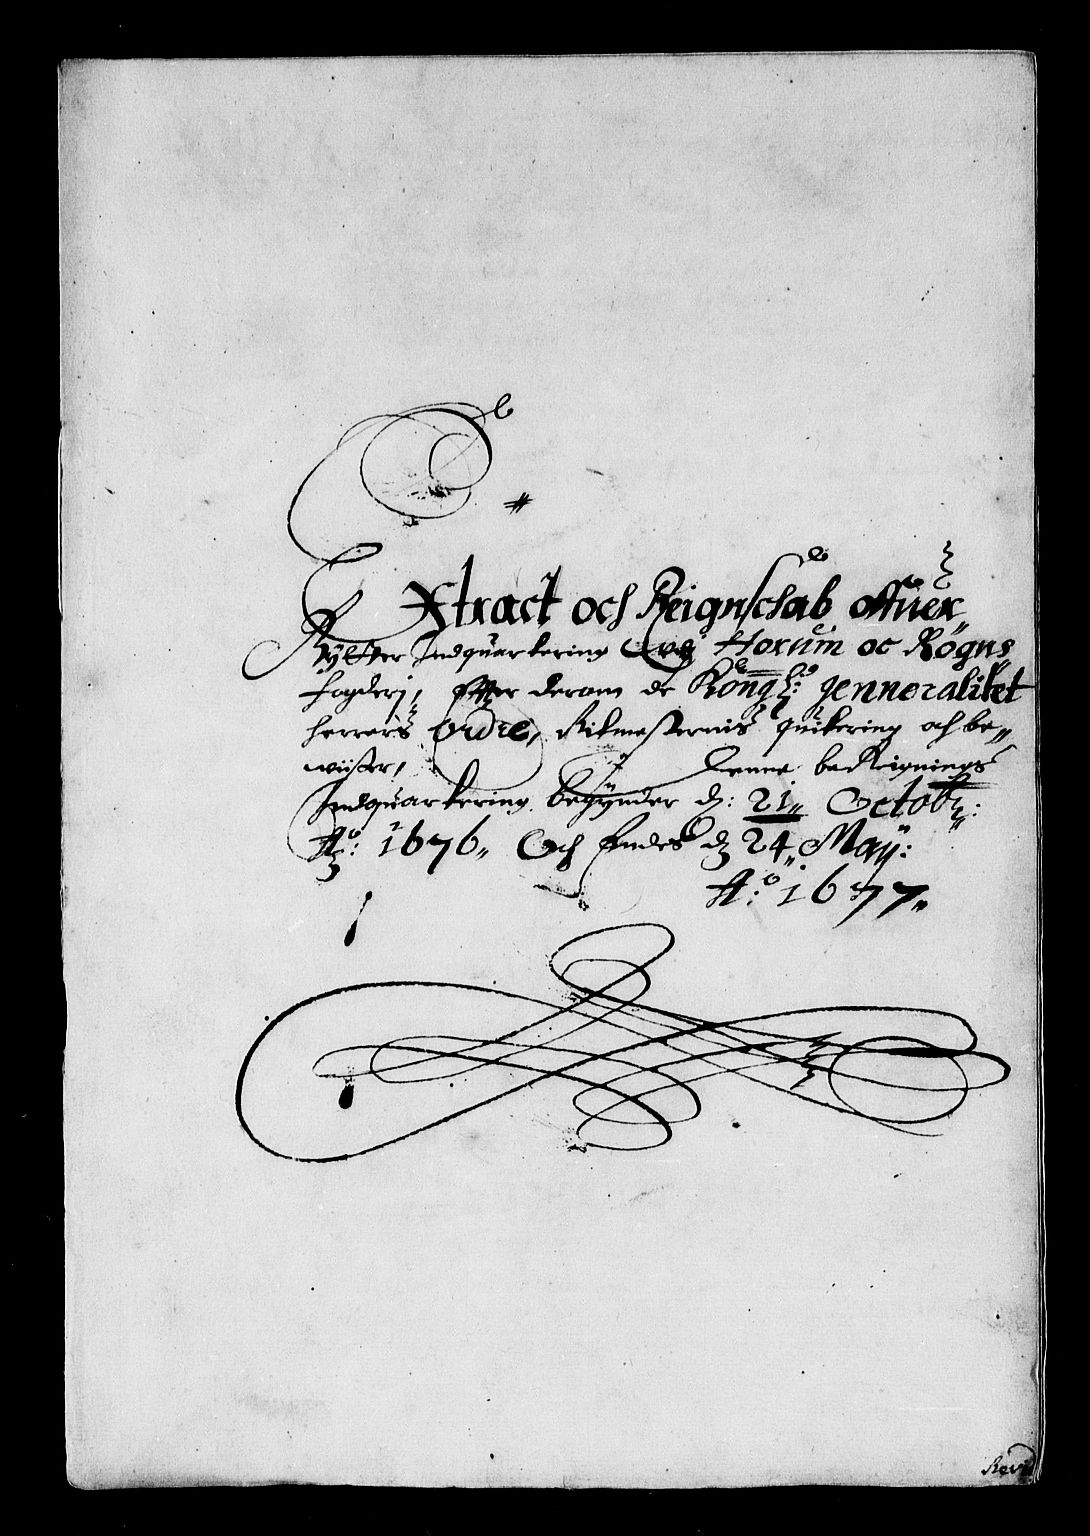 Extract och Reignschab offuer
Rÿtter Indquartering udj Horum oc Røgns
fogderj, Efter derom de Kongl: Jenneralitet
herrers ordre, Ritmesternis quitering och be„
wiiser, Denne beReignings
Indquartering begÿnder d: 21„ Octobr:
Ao: 1676„ Och Endes d 24„ Maÿ:
Ao: 1677„
Revi